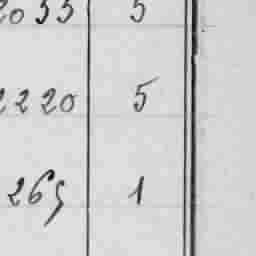 2033 5
2220 5
265 1